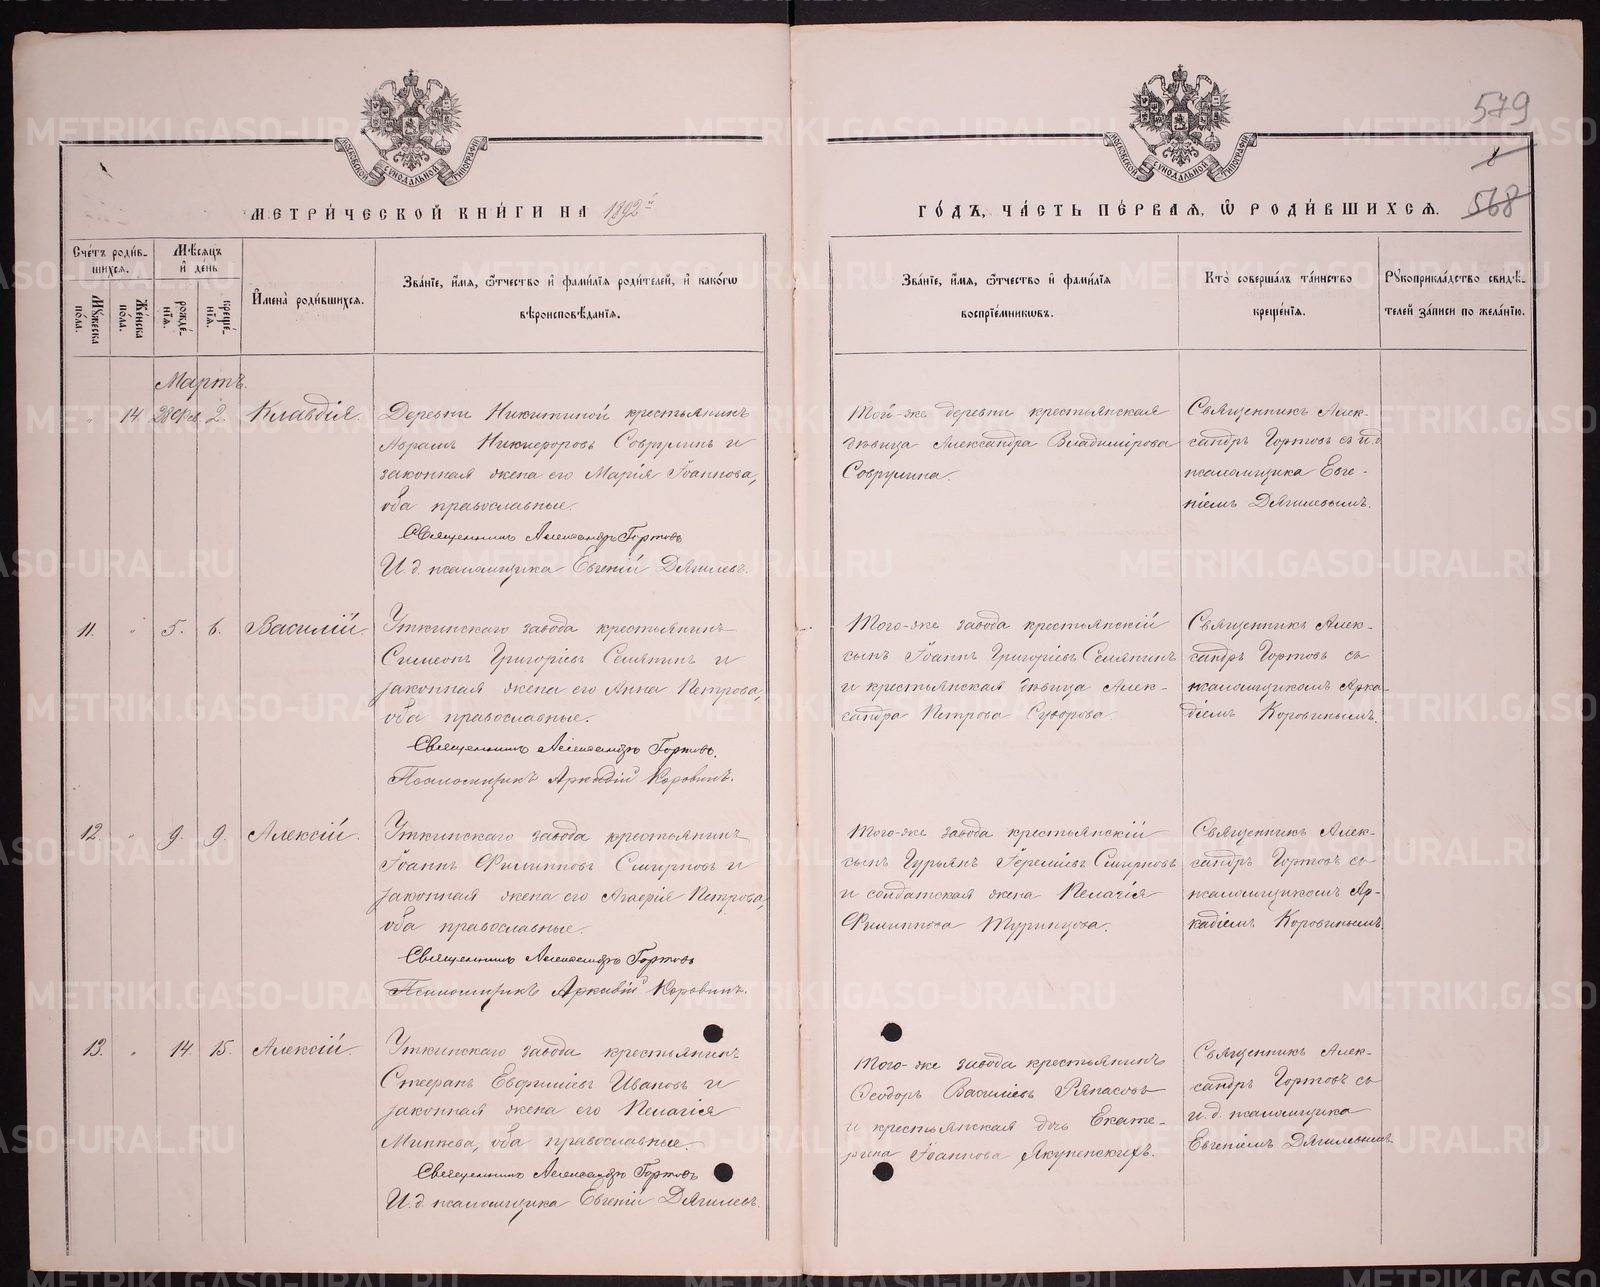 МЕТРИ́ЧЕСКОЙ КНИ́ГИ НА 1892й
ГО́ДЪ, ЧА́СТЬ ПЕ́РВАЯ, Ѡ҆ РОДИ́ВШИХСѦ.
579
8
568
МОСКОВСКОЙ СѴНОДАЛЬНОЙ ТИПОГРАФІИ
МОСКОВСКОЙ СѴНОДАЛЬНОЙ ТИПОГРАФІИ
Сче́тъ роди́в-
шихсѧ.
Мꙋ́жеска по́ла.
Же́нска по́ла.
Мѣ́сѧцъ
и҆ де́нь
рожде́-нїѧ.
креще́-нїѧ.
И҆мена̀ роди́вшихсѧ.
Зва́нїе, и҆́мѧ, ѻ҆́тчество и҆ фами́лїѧ роди́телей, и҆ како́гѡ
вѣроисповѣ́данїѧ.
Зва́нїе, и҆́мѧ, ѻ҆́тчество и҆ фами́лїѧ
воспрїе́мникѡвъ.
Кто̀ соверша́лъ та́инство
креще́нїѧ.
Рꙋкоприкла́дство свидѣ́-
телей за́писи по жела́нїю.
Мартъ.
" 14 28 Фев. 2. Клавдія.
Деревни Никитиной крестьянинъ
Аврамъ Никифоровъ Соврулинъ и
законная жена его Марія Іоаннова,
оба православные.
Священникъ Александръ Гортовъ
И. д. псаломщика Евгеній Дягилевъ.
Той-же деревни крестьянская
дѣвица Александра Владимірова
Соврулина.
Священникъ Алек-
сандръ Гортовъ съ и. д.
псаломщика Евге-
ніемъ Дягилевымъ.
11. " 5. 6. Василій.
Уткинскаго завода крестьянинъ
Симеонъ Григоріевъ Семянинъ и
законная жена его Анна Петрова,
оба православные.
Священникъ Александръ Гортовъ.
Псаломщикъ Аркадій Коровинъ.
Того-же завода крестьянскій
сынъ Іоаннъ Григоріевъ Семянинъ
и крестьянская дѣвица Алек-
сандра Петрова Суворова.
Священникъ Алек-
сандръ Гортовъ съ
псаломщикомъ Арка-
діемъ Коровинымъ.
12. " 9. 9. Алексій.
Уткинскаго завода крестьянинъ
Іоаннъ Филипповъ Смирновъ и
законная жена его Агафія Петрова,
оба православные.
Священникъ Александръ Гортовъ
Псаломщикъ Аркадій Коровинъ.
Того-же завода крестьянскій
сынъ Гурьянъ Іереміевъ Смирновъ
и солдатская жена Пелагія
Филиппова Туринцова.
Священникъ Алек-
сандръ Гортовъ съ
псаломщикомъ Ар-
кадіемъ Коровинымъ.
13. " 14. 15. Алексій.
Уткинскаго завода крестьянинъ
Стефанъ Евфиміевъ Ивановъ и
законная жена его Пелагія
Минеева, оба православные.
Священникъ Александръ Гортовъ
И. д. псаломщика Евгеній Дягилевъ.
Того-же завода крестьянинъ
Ѳеодоръ Василіевъ Ряпасовъ
и крестьянская дочь Екате-
рина Іоаннова Якупенскихъ.
Священникъ Алек-
сандръ Гортовъ съ
и. д. псаломщика
Евгеніемъ Дягилевымъ